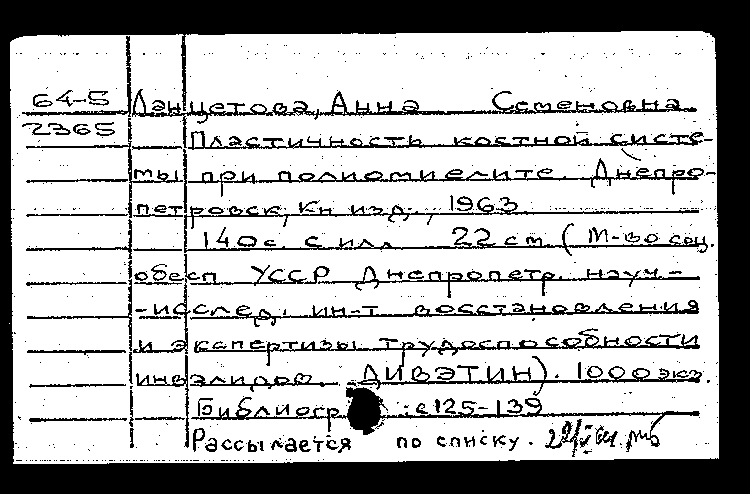 64-5 Ланцетова, Анна Семеновна
2365 Пластичность костной систе-
мы при полиомиелите. Днепро-
петровск, Кн. изд., 1963
140 с. с илл 22 см (М-во соц.
обесп УССР Днепропетр. науч-
-исслед. ин-т восстановления
и экспертизы трудоспособности
инвалидов. ДИВЭТИН). 1000 экз.
Библиогр : с 125-139
Рассылается по списку.